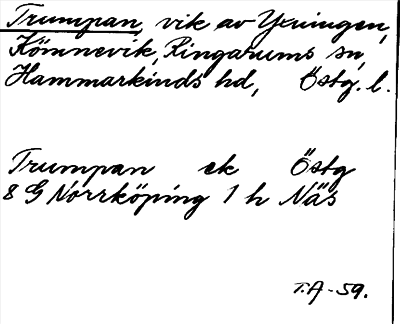 Trumpan, vik av Yxningen,
Kömnevik, Ringarums sn,
Hammarkinds hd, Östg. l.
Trumpan ek Östg
8 G Norrköping 1 h Näs
T.A-59.